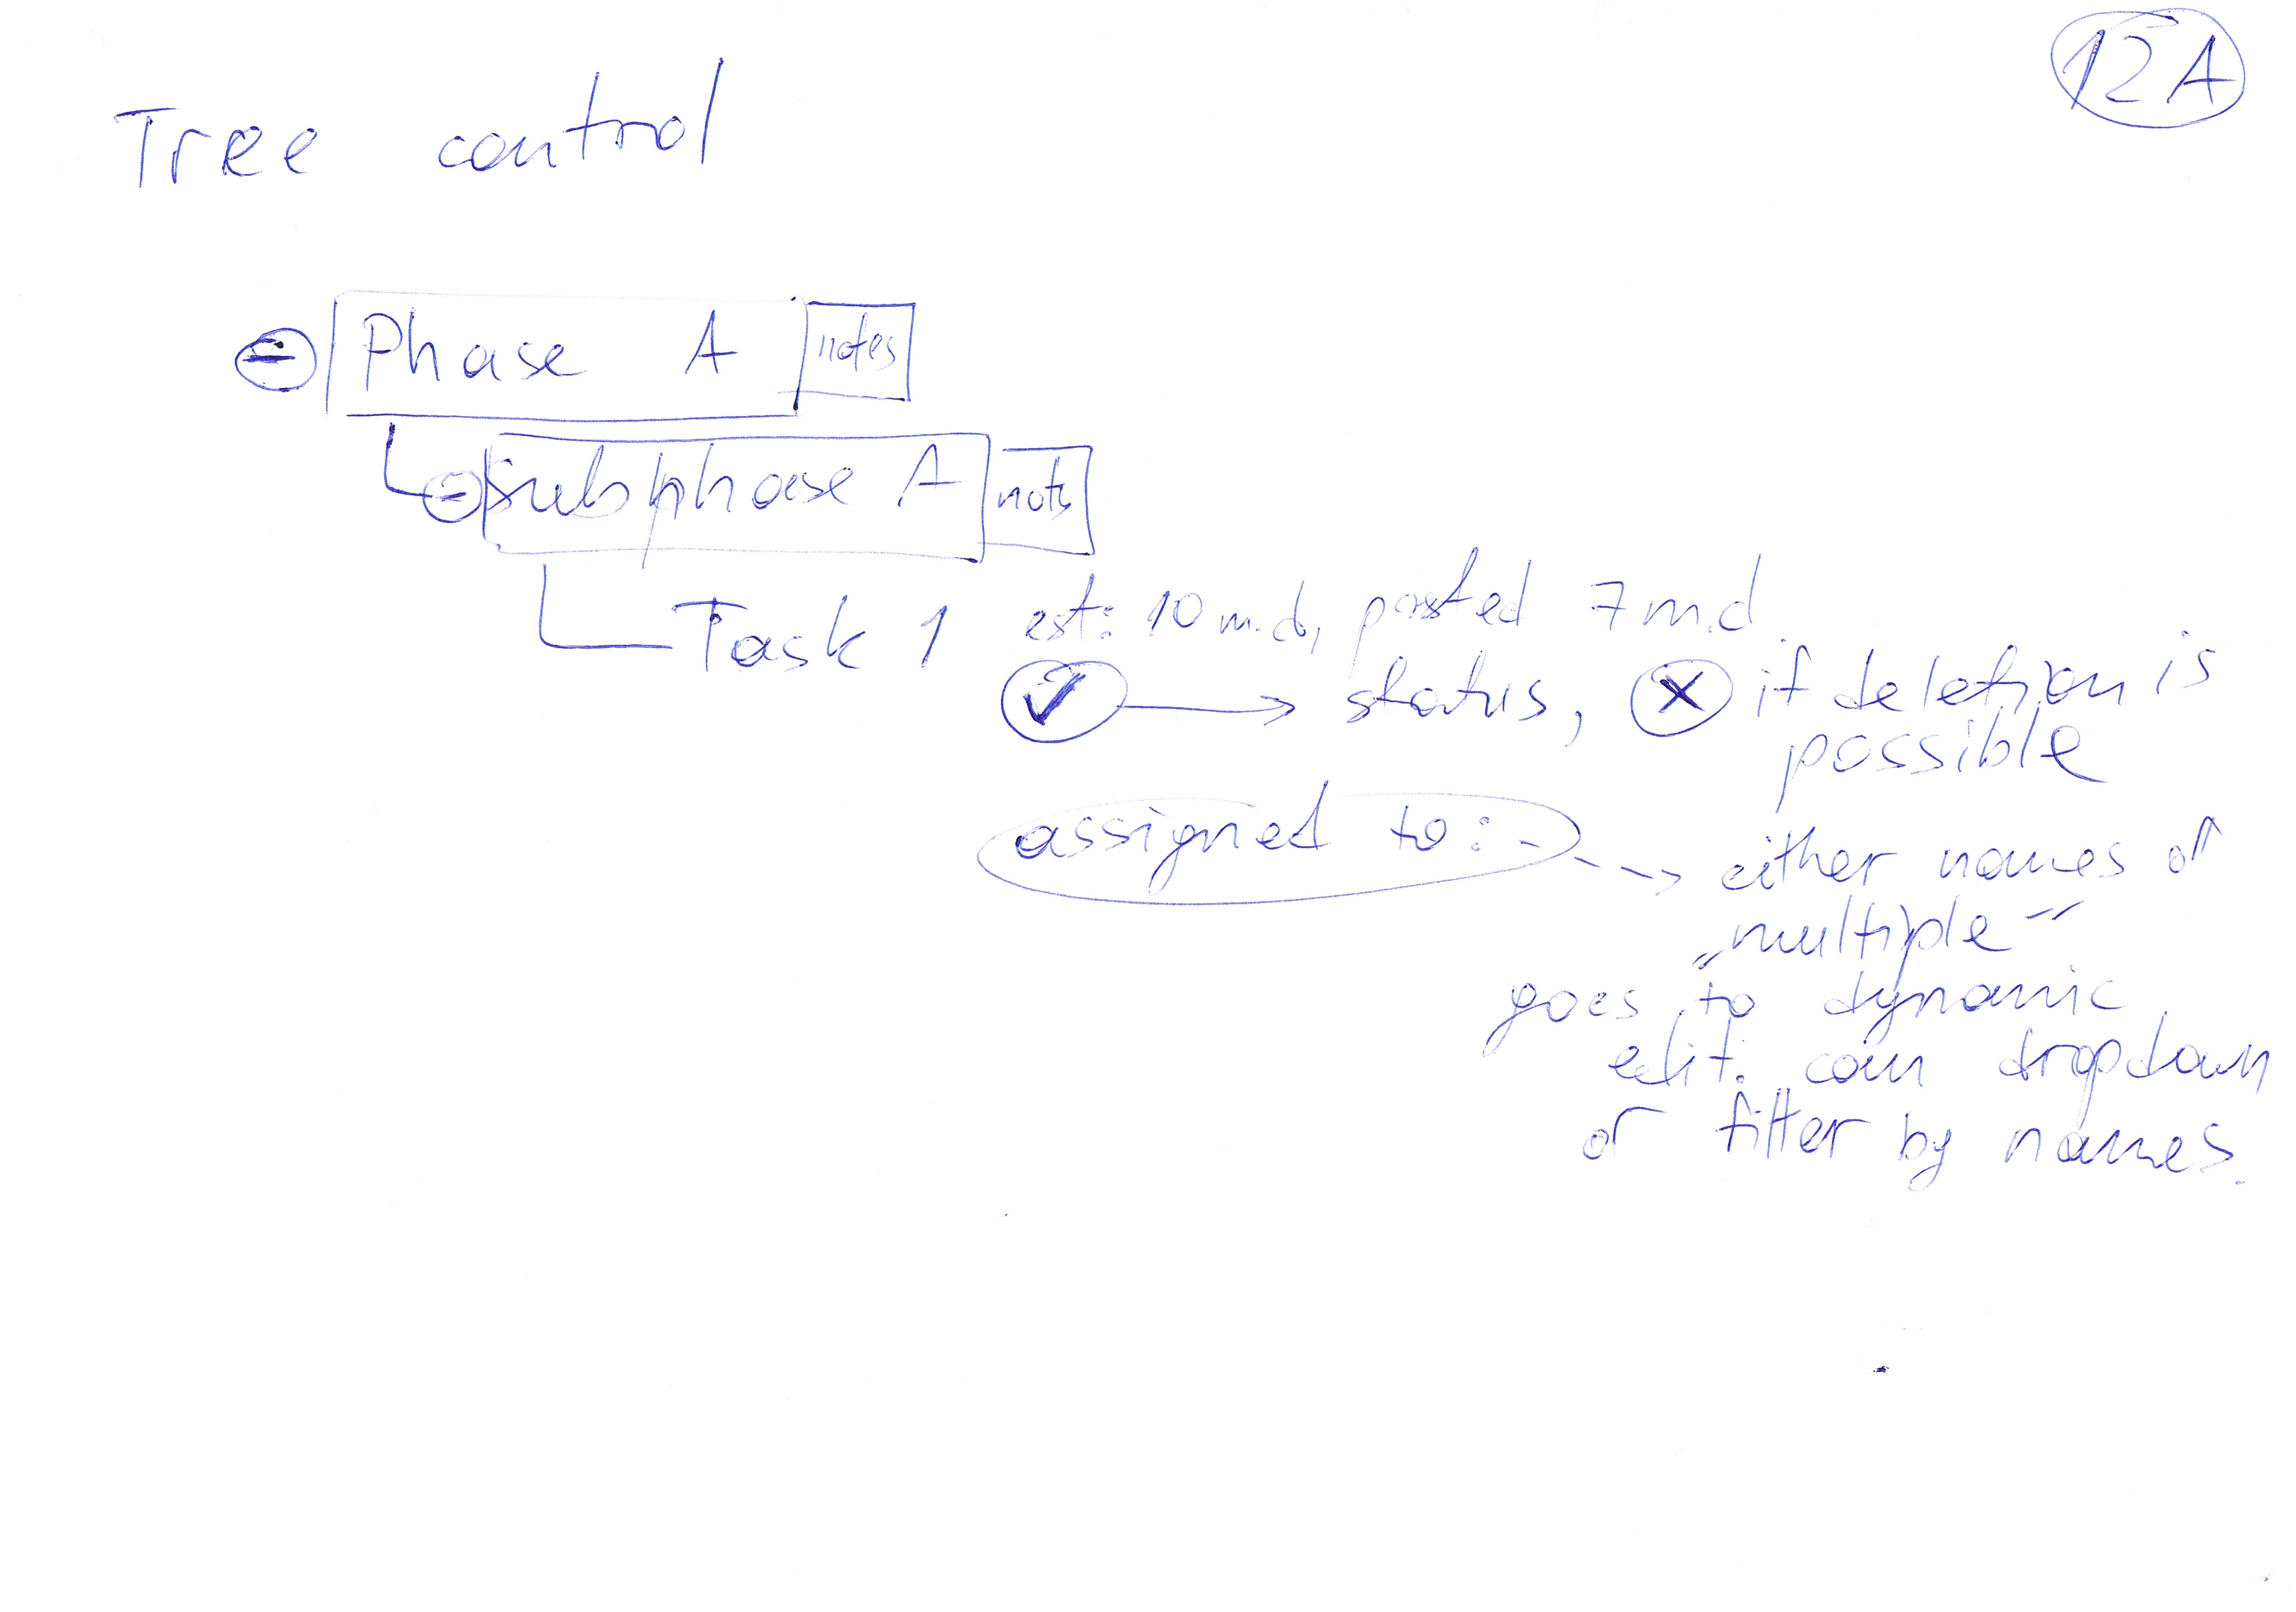 12A
Tree control
Phase A notes
subphase A nots
Task 1 est: 10 m.d, posted 7 m.d
status, if deletion is
possible
assigned to: either names or
„multiple"
goes to dynamic
edit. can dropdown
or filter by names.